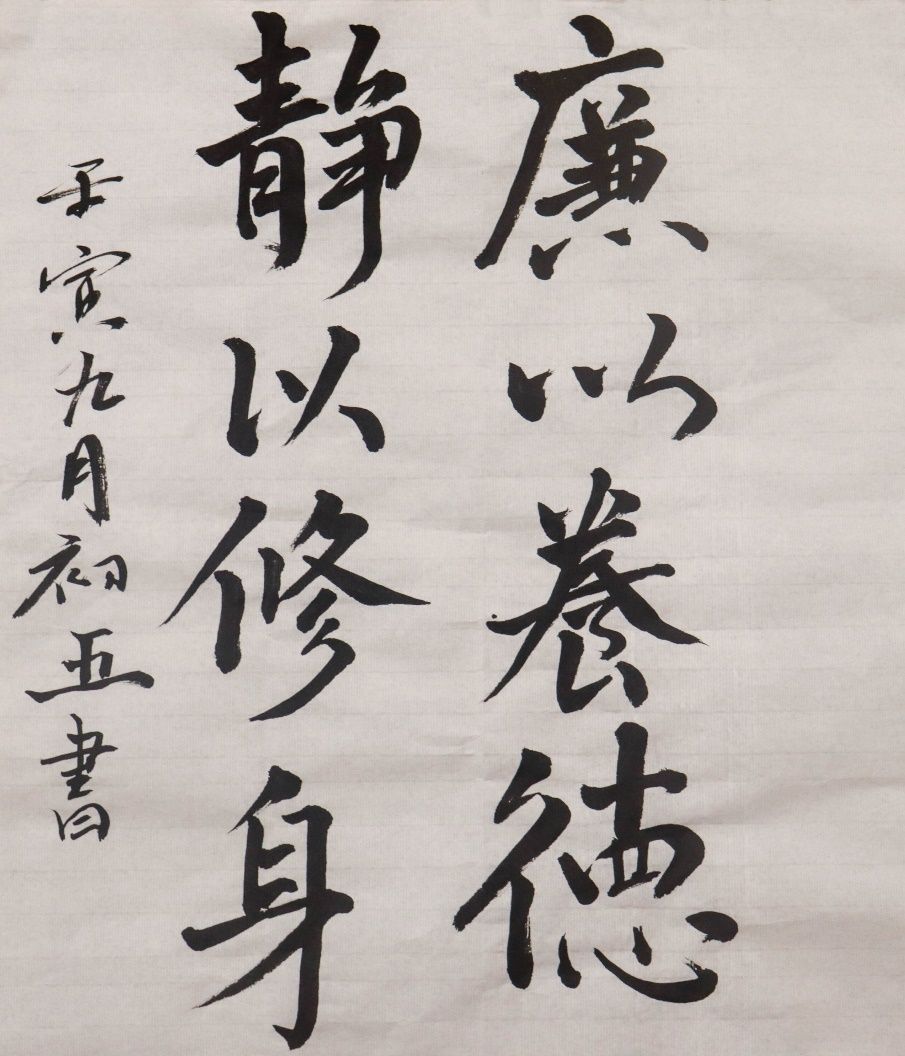 廉以養德
靜以修身
壬寅九月初五書